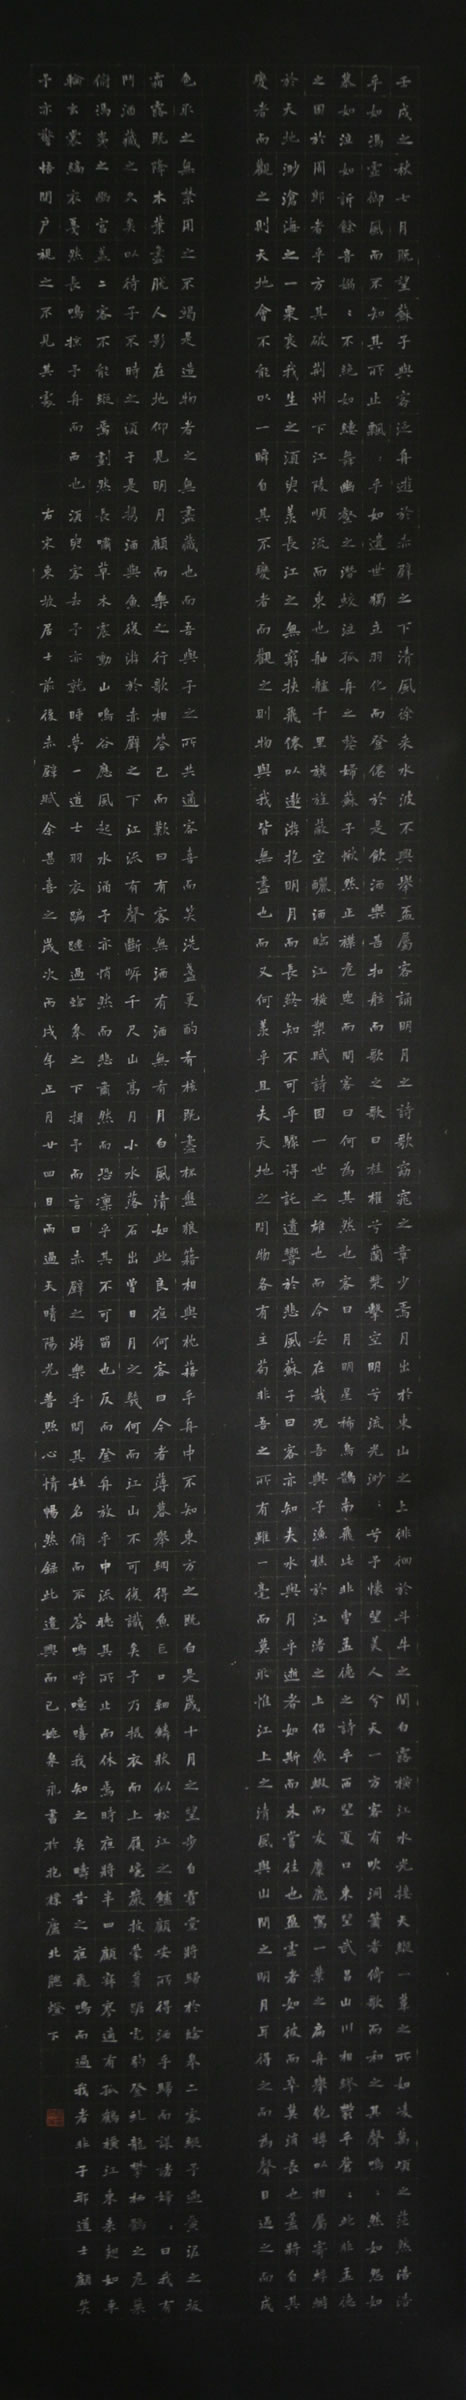 壬戌之秋七月既望蘇子與客泛舟遊於赤壁之下清風徐來水波不興舉盃屬客誦明月之詩歌窈窕之章少焉月出於東山之上徘徊於斗牛之間白露橫江水光接天縱一葦之所如凌萬頃之茫然浩浩
乎如馮虛御風而不知其所止飄:乎如遺世獨立羽化而登僊於是飲酒樂甚扣舷而歌之歌曰桂櫂兮蘭槳擊空明兮流光渺:兮予懷望美人兮天一方客有吹洞簫者倚歌而和之其聲嗚:然如怨如
慕如泣如訴餘音嫋:不絕如縷舞幽壑之潛蛟泣孤舟之嫠婦蘇子愀然正襟危坐而問客曰何為其然也客曰月明星稀烏鵲南飛此非曹孟德之詩乎西望夏口東望武昌山川相繆鬱乎蒼:此非孟德
之困於周郎者乎方其破荊州下江陵順流而東也舳艫千里旗旌蔽空釃酒臨江橫槊賦詩固一世之雄也而今安在哉況吾與子漁樵於江渚之上侶魚蝦而友麋鹿駕一葉之扁舟舉匏樽以相屬寄蜉蝣
於天地渺滄海之一粟哀我生之須臾羨長江之無窮挾飛僊以遨游抱明月而長終知不可乎驟得託遺響於悲風蘇子曰客亦知夫水與月乎逝者如斯而未嘗往也盈虛者如彼而卒莫消長也蓋將自其
變者而觀之則天地曾不能以一時自其不變者而觀之則物與我皆無盡也而又何羨乎且夫天地之間物各有主苟非吾之所有雖一毫而莫取惟江上之清風與山間之明月耳得之而為聲目遇之而成
色取之無禁用之不竭是造物者之無盡藏也而吾與子之所共適客喜而笑洗盞更酌肴核既盡杯盤狼籍相與枕藉乎舟中不知東方之既白是歲十月之望步自雪堂將歸於臨皋二客從予過黃泥之坂
霜露既降木葉盡脫人影在地仰見明月顧而樂之行歌相答已而歎曰有客無酒有酒無肴月白風清如此良夜何客曰今者薄暮舉網得魚巨口細鱗狀似松江之鱸顧安所得酒乎歸而謀諸婦:曰我有
斗酒藏之久矣以待子不時之須于是攜酒與魚復游於赤壁之下江流有聲斷岸千尺山高月小水落石出曾日月之幾何而江山不可復識矣予乃攝衣而上履巉巖披蒙茸踞虎豹登虬龍攀栖鶻之危巢
俯馮夷之幽宮蓋二客不能從焉劃然長嘯草木震動山鳴谷應風起水涌予亦悄然而悲肅然而恐凜乎其不可留也反而登舟放乎中流聽其所止而休焉時夜將半四顧寂寥適有孤鶴橫江東來翅如車
輪玄裳縞衣戛然長鳴掠予舟而西也須臾客去予亦就睡夢一道士羽衣蹁躚過臨皋之下揖予而言曰赤壁之游樂乎問其姓名俯而不答嗚呼噫嘻我知之矣疇昔之夜飛鳴而過我者非子耶道士顧笑
予亦驚悟開戶視之不見其處 右宋東坡居士前後赤壁賦余甚喜之歲次丙戌年正月廿四日雨過天晴陽光普照心情暢然錄此遣興而已姚泉永書於抱樸廬北牕燈下